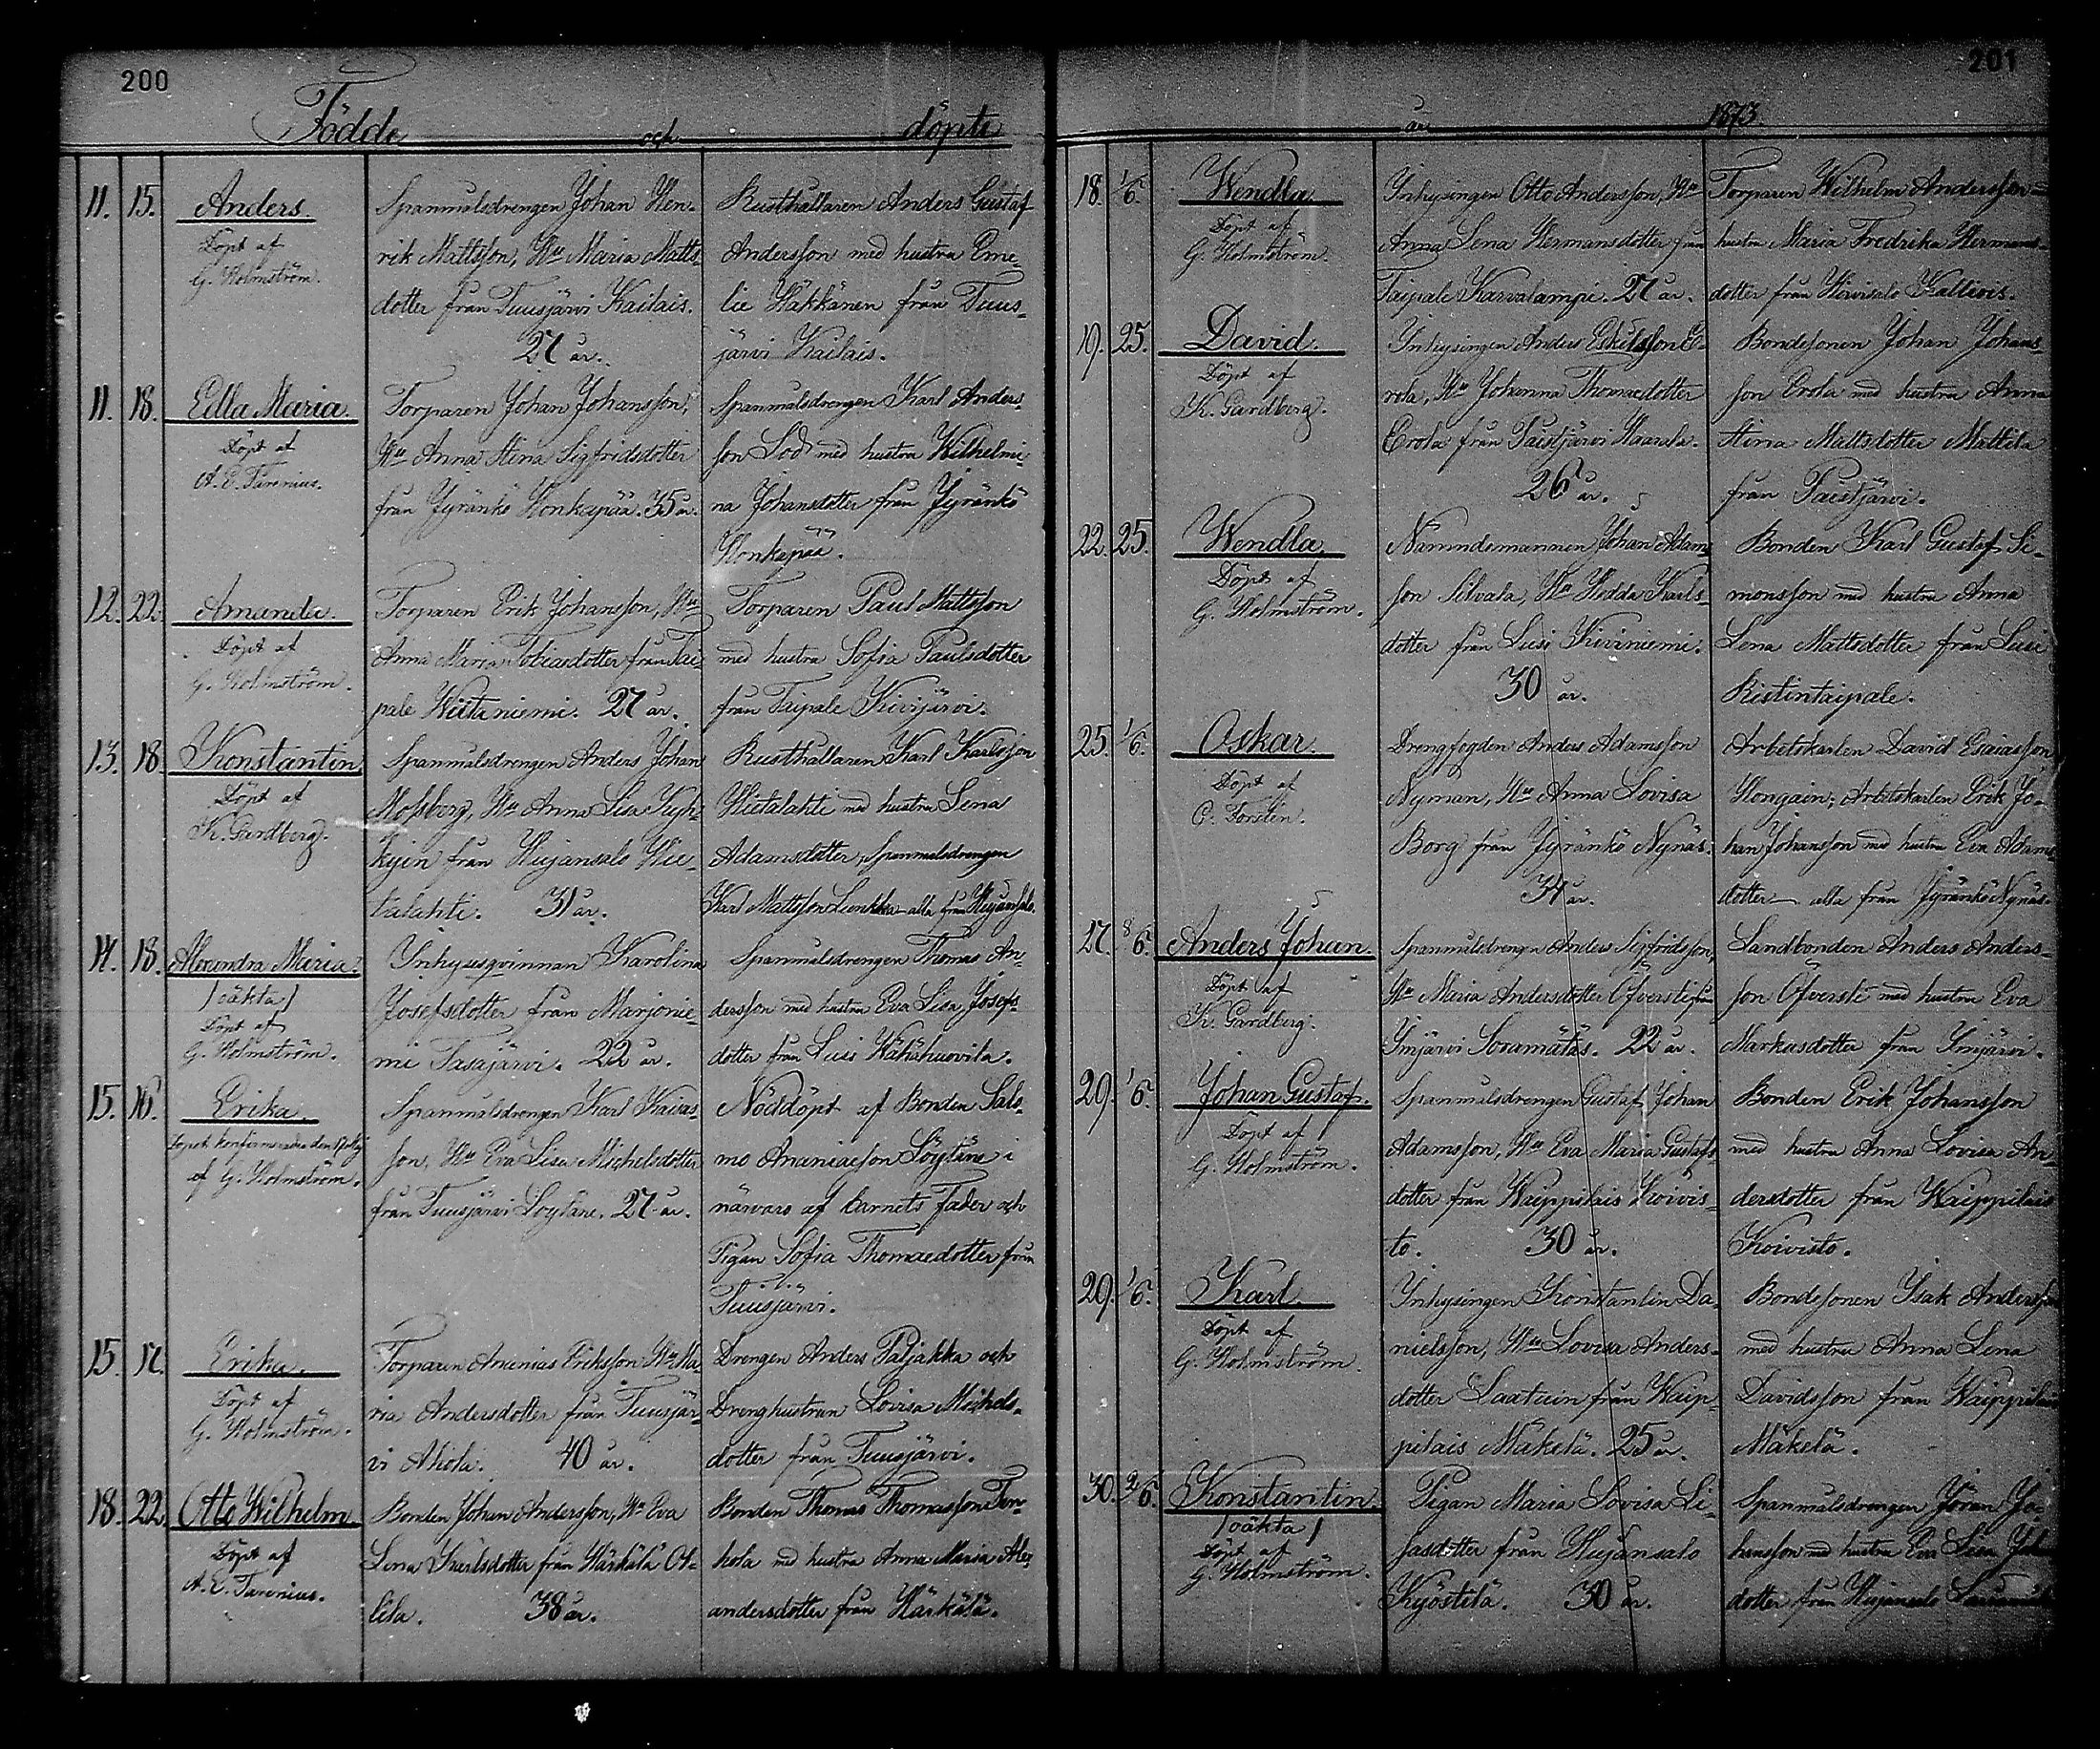 200
Födde och döpte
11. 15. Anders.
Döpt af
G. Holmström.
Spanmålsdrengen Johan Hen-
rik Mattsson, Hu Maria Matts-
dotter från Tuusjärvi Kailais.
27 år.
Rusthållaren Anders Gustaf
Andersson med hustru Eme-
lie Häkkänen från Tuus-
järvi Kailais.
11. 18. Edla Maria.
Döpt af
A. E. Tarenius.
Torparen Johan Johansson,
Hu Anna Stina Sigfridsdotter
från Jyränkö Honkapää. 35 år.
Spanmålsdrengen Karl Anders-
son Lod med hustru Wilhelmi-
na Johansdotter från Jyränkö
Honkapää.
12. 22. Amanda.
Döpt af
G. Holmström.
Torparen Erik Johansson, Hu
Anna Maria Tobiasdotter från Tai-
pale Wiitaniemi. 27 år.
Torparen Paul Mattsson
med hustru Sofia Paulsdotter
från Taipale Kivijärvi.
13. 18. Konstantin.
Döpt af
K. Gardberg.
Spanmålsdrengen Anders Johan
Mossberg, Hu Anna Lisa
från Hujansalo Hie-
talahti. 31 år.
Rusthållaren Karl Karlsson
Hietalahti med hustru Lena
Adamsdotter, Spanmålsdrengen
Karl Mattsson alla från Hujansalo.
14. 18. Alexandra Maria.
/oäkta/
Döpt af
G. Holmström.
Inhysesqvinnan Karolina
Josefsdotter från Marjonie-
mi Tasajärvi. 22 år.
Spanmålsdrengen Thomas An-
dersson med hustru Eva Lisa Josefs-
dotter från Lusi Wähähuovila.
15. 16. Erika.
Dopet konfirmerades den
af G. Holmström.
Spanmålsdrengen Karl Kaias-
son, Hu Eva Lisa Michelsdotter
från Tuusjärvi Löytäne. 27 år.
Nöddöpt af Bonden Salo-
mo Ananiasson Löytäne i
närvaro af barnets fader och
Pigan Sofia Thomasdotter från
Tuusjärvi.
15. 17. Erika.
Döpt af
G. Holmström.
Torparen Ananias Eriksson, Hu Ma-
ria Andersdotter från Tuusjär-
vi Ahola. 40 år.
Drengen Anders Paljakka och
Drenghustrun Lovisa Michels-
dotter från Tuusjärvi.
18. 22. Otto Wilhelm.
Döpt af
A. E. Tarenius.
Bonden Johan Andersson, Hu Eva
Lena Karlsdotter från Härkälä Ol-
lila. 38 år.
Bonden Thomas Thomasson Ten-
hola med hustru Anna Maria Alex-
andersdotter från Härkälä.
201
år 1873.
18. 1/6. Wendla.
Döpt af
G. Holmström.
Inhysingen Otto Andersson, Hu
Anna Lena Hermansdotter från
Taipale Karvalampi. 27 år.
Torparen Wilhelm Andersson
hustru Maria Fredrika Hermans-
dotter från Hirvisalo Kalliois.
19. 25. David.
Döpt af
K. Gardberg.
Inhysingen Anders Eskilsson E-
rola, Hu Johanna Thomasdotter
Erola från Paistjärvi Haarala.
26 år.
Bondesonen Johan Johans-
son Erola med hustru Anna
Stina Mattsdotter Mattila
från Paistjärvi.
22. 25. Wendla.
Döpt af
G. Holmström.
Nämndemannen Johan Adams-
son Silvala, Hu Hedda Karls-
dotter från Lusi Kiviniemi.
30 år.
Bonden Karl Gustaf Si-
monsson med hustru Anna
Lena Mattsdotter från Lusi
Ristintaipale.
25. 1/6. Oskar.
Döpt af
C. Forstén.
Drengfogden Anders Adamsson
Nyman, Hu Anna Lovisa
Borg från Jyränkö Nynäs.
34 år.
Arbetskarlen David Esaiasson
Hongain, Arbetskarlen Erik Jo-
han Johansson med hustru Eva Adams-
dotter alla från Jyränkö Nynäs.
27. 8/6. Anders Johan.
Döpt af
K. Gardberg.
Spanmålsdrengen Anders Sigfridsson,
Hu Maria Andersdotter Öfversti från
Imjärvi Soramätäs. 22 år.
Landbonden Anders Anders-
son Öfversti med hustru Eva
Markusdotter från Imjärvi.
29. 1/6. Johan Gustaf.
Döpt af
G. Holmström.
Spanmålsdrengen Gustaf Johan
Adamsson, Hu Eva Maria Gustafs-
dotter från Waippilais Koivis-
to. 30 år.
Bonden Erik Johansson
med hustru Anna Lovisa An-
dersdotter från Waippilais
Koivisto.
29. 1/6. Karl.
Döpt af
G. Holmström.
Inhysingen Konstantin Da-
nielsson, Hu Lovisa Anders-
dotter Laatuin från Waip-
pilais Mäkelä. 25 år.
Bondesonen Isak Andersson
med hustru Anna Lena
Davidsson från Waippilais
Mäkelä.
30. 2/6. Konstantin.
/oäkta/
Döpt af
G. Holmström.
Pigan Maria Lovisa Li-
sasdotter från Hujansalo
Kyöstilä. 30 år.
Spanmålsdrengen Jöran Jo-
hansson med hustru Eva Lisa
dotter från Hujansalo